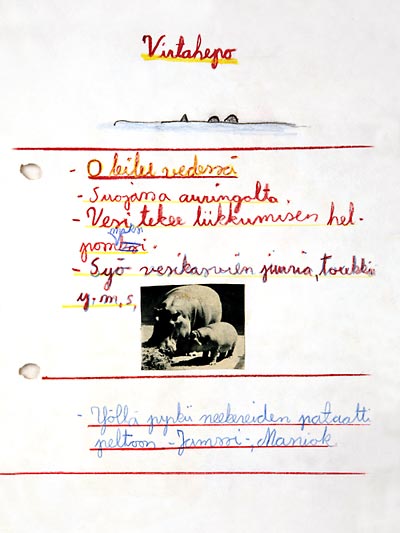 Virtahepo
- O
- Suojassa auringolta.
- Vesi tekee liikkumisen hel-
- Syö vesikasvien juuria,
y.m.s,
- Yöllä pyrkii neekereiden pataatti
peltoon - Jamssi -, Maniok.